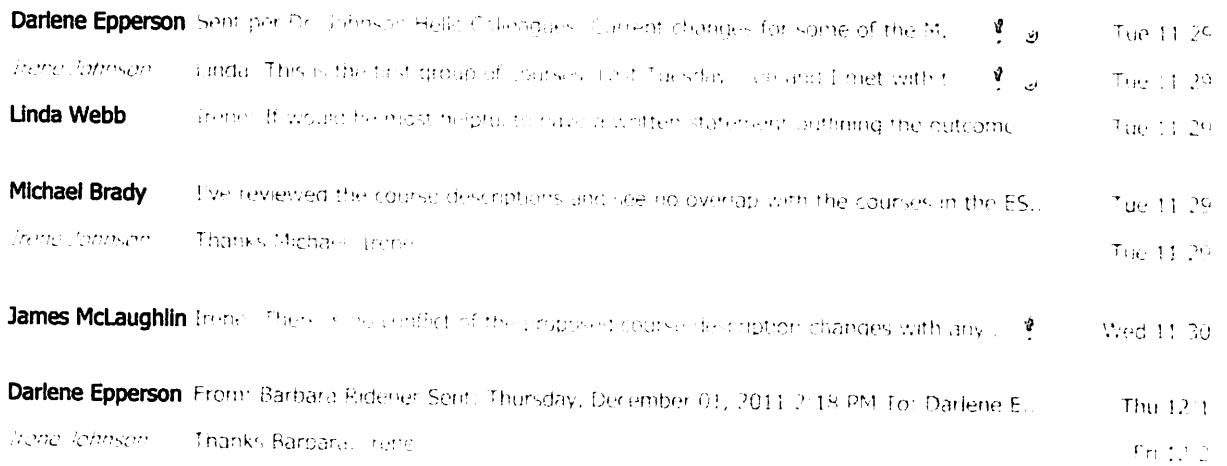 Darlene Epperson Sent per Dr. Johnson Hello Colleagues, Current changes for some of the M. Tue 11 29
Irene Johnson Linda, This is the first group of courses. Last Tuesday and I met with t Tue 11 29
Linda Webb Irene, It would be most helpful to have a written statement outlining the outcome Tue 11 29
Michael Brady I've reviewed the course descriptions and see no overlap with the courses in the ES.. Tue 11 29
Irene Johnson Thanks Michael. Irene Tue 11 29
James McLaughlin Irene, There is no conflict of the proposed course description changes with any . Wed 11 30
Darlene Epperson From: Barbara Ridener Sent: Thursday, December 01, 2011 2:18 PM To: Darlene E.. Thu 12 1
Irene Johnson Thanks Barbara. Irene Fri 12 2